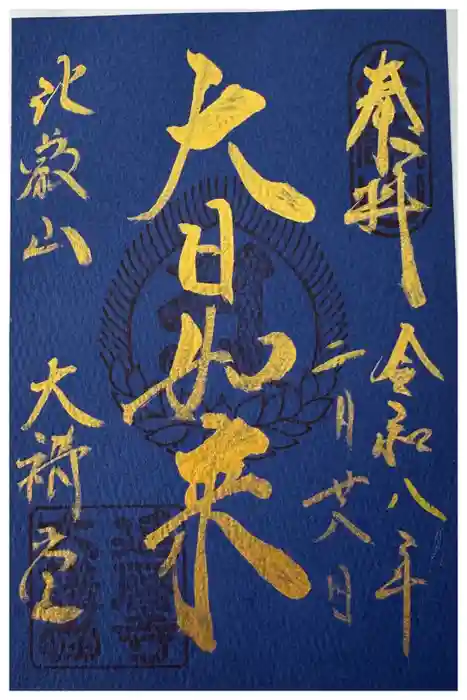 奉拝 令和八年
二月廿八日
大日如来
比叡山 大講堂